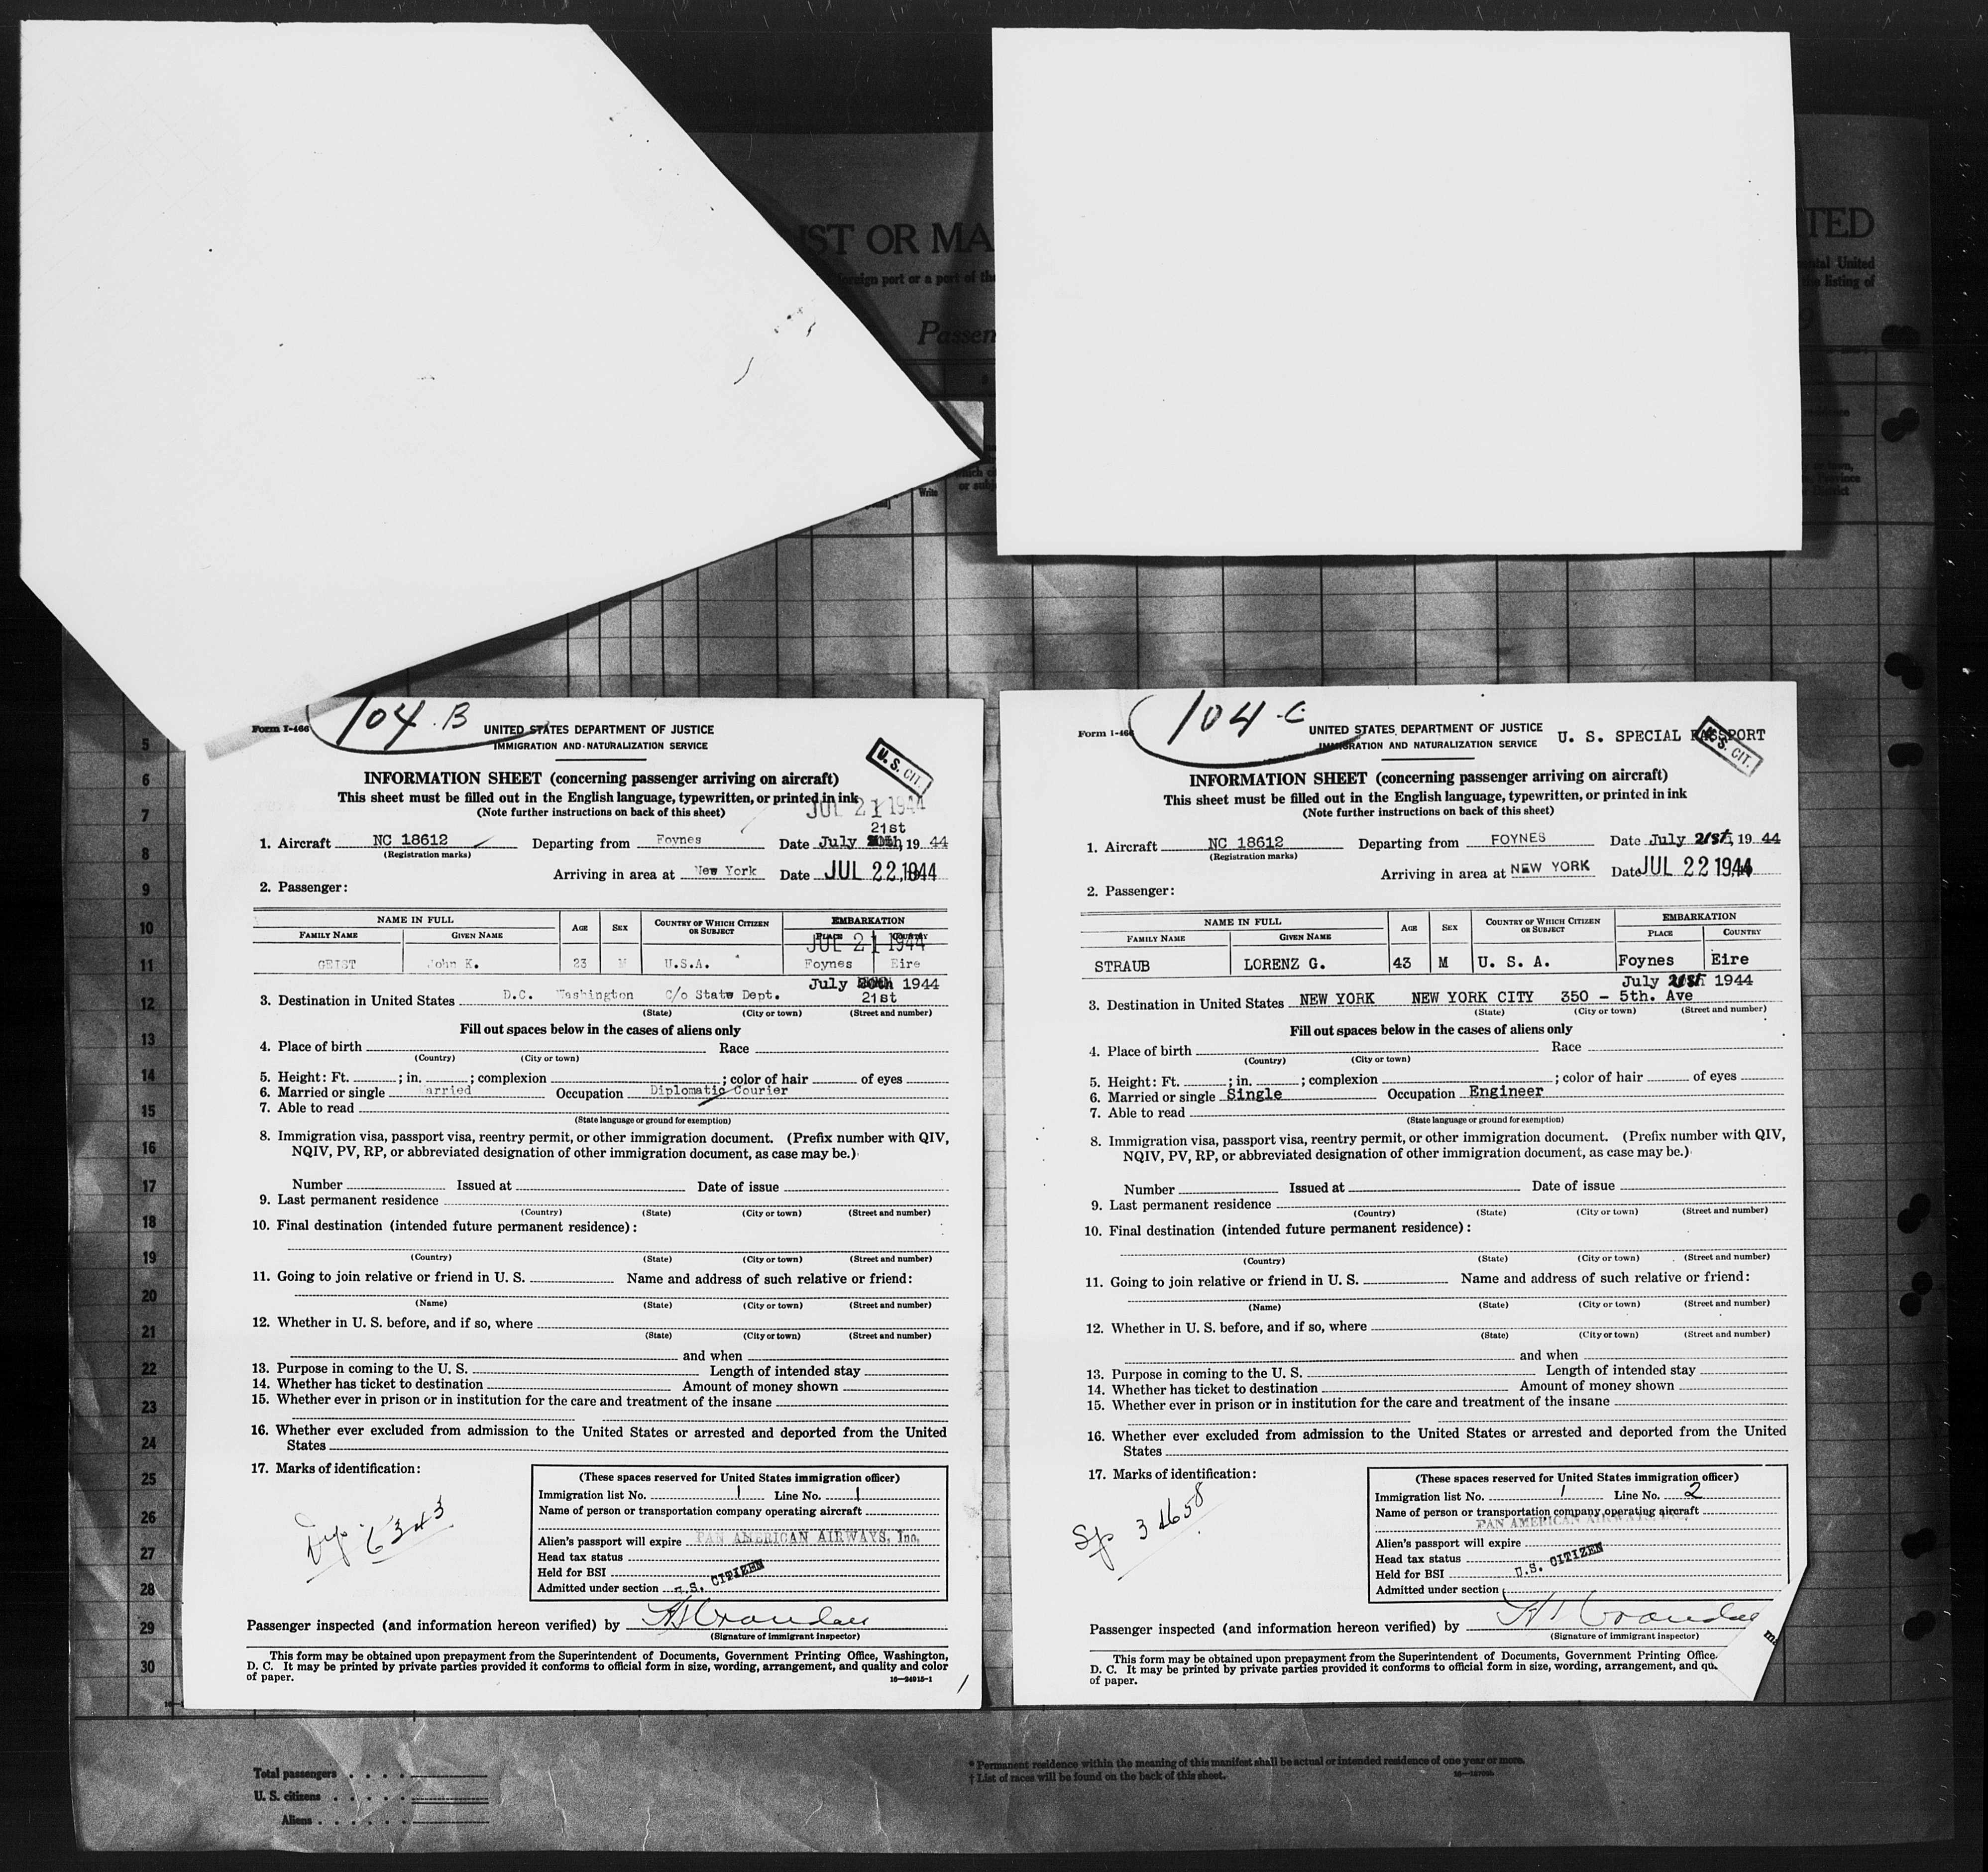 IST OR MA
TED
foreign port or a port of the
ental United
the listing of
Passen
Write
5
6
7
8
9
10
11
12
13
14
15
16
17
18
19
20
21
22
23
24
25
26
27
28
29
30
Form I-466
104 B
UNITED STATES DEPARTMENT OF JUSTICE
IMMIGRATION AND NATURALIZATION SERVICE
U. S. CIT.
INFORMATION SHEET (concerning passenger arriving on aircraft)
This sheet must be filled out in the English language, typewritten, or printed in ink
JUL 21 1944
(Note further instructions on back of this sheet)
21st
1. Aircraft NC 18612 Departing from Foynes Date July 19 44
(Registration marks)
Arriving in area at New York Date JUL 22 1944
2. Passenger:
NAME IN FULL AGE SEX COUNTRY OF WHICH CITIZEN OR SUBJECT EMBARKATION
FAMILY NAME GIVEN NAME PLACE COUNTRY
JUL 21 1944
GEIST John K. 23 M U.S.A. Foynes Eire
July 20th 1944
21st
3. Destination in United States D.C. Washington C/o State Dept.
(State) (City or town) (Street and number)
Fill out spaces below in the cases of aliens only
4. Place of birth Race
(Country) (City or town)
5. Height: Ft. ; in. ; complexion ; color of hair of eyes
6. Married or single Married Occupation Diplomatic Courier
7. Able to read
(State language or ground for exemption)
8. Immigration visa, passport visa, reentry permit, or other immigration document. (Prefix number with QIV,
NQIV, PV, RP, or abbreviated designation of other immigration document, as case may be.)
Number Issued at Date of issue
9. Last permanent residence
(Country) (State) (City or town) (Street and number)
10. Final destination (intended future permanent residence):
(Country) (State) (City or town) (Street and number)
11. Going to join relative or friend in U. S. Name and address of such relative or friend:
(Name) (State) (City or town) (Street and number)
12. Whether in U. S. before, and if so, where
(State) (City or town) (Street and number)
and when
13. Purpose in coming to the U. S. Length of intended stay
14. Whether has ticket to destination Amount of money shown
15. Whether ever in prison or in institution for the care and treatment of the insane
16. Whether ever excluded from admission to the United States or arrested and deported from the United
States
17. Marks of identification:
Dip 6343
(These spaces reserved for United States immigration officer)
Immigration list No. 1 Line No. 1
Name of person or transportation company operating aircraft
Alien's passport will expire PAN AMERICAN AIRWAYS, Inc.
Head tax status
Held for BSI
Admitted under section U.S. CITIZEN
Passenger inspected (and information hereon verified) by
(Signature of immigrant inspector)
This form may be obtained upon prepayment from the Superintendent of Documents, Government Printing Office, Washington,
D. C. It may be printed by private parties provided it conforms to official form in size, wording, arrangement, and quality and color
of paper.
16—24915-1
Form I-466
104-C
UNITED STATES DEPARTMENT OF JUSTICE
IMMIGRATION AND NATURALIZATION SERVICE
U. S. SPECIAL PASSPORT
U. S. CIT.
INFORMATION SHEET (concerning passenger arriving on aircraft)
This sheet must be filled out in the English language, typewritten, or printed in ink
(Note further instructions on back of this sheet)
1. Aircraft NC 18612 Departing from FOYNES Date July 21st, 19 44
(Registration marks)
Arriving in area at NEW YORK Date JUL 22 1944
2. Passenger:
NAME IN FULL AGE SEX COUNTRY OF WHICH CITIZEN OR SUBJECT EMBARKATION
FAMILY NAME GIVEN NAME PLACE COUNTRY
STRAUB LORENZ G. 43 M U. S. A. Foynes Eire
July 21st 1944
3. Destination in United States NEW YORK NEW YORK CITY 350 - 5th. Ave
(State) (City or town) (Street and number)
Fill out spaces below in the cases of aliens only
4. Place of birth Race
(Country) (City or town)
5. Height: Ft. ; in. ; complexion ; color of hair of eyes
6. Married or single Single Occupation Engineer
7. Able to read
(State language or ground for exemption)
8. Immigration visa, passport visa, reentry permit, or other immigration document. (Prefix number with QIV,
NQIV, PV, RP, or abbreviated designation of other immigration document, as case may be.)
Number Issued at Date of issue
9. Last permanent residence
(Country) (State) (City or town) (Street and number)
10. Final destination (intended future permanent residence):
(Country) (State) (City or town) (Street and number)
11. Going to join relative or friend in U. S. Name and address of such relative or friend:
(Name) (State) (City or town) (Street and number)
12. Whether in U. S. before, and if so, where
(State) (City or town) (Street and number)
and when
13. Purpose in coming to the U. S. Length of intended stay
14. Whether has ticket to destination Amount of money shown
15. Whether ever in prison or in institution for the care and treatment of the insane
16. Whether ever excluded from admission to the United States or arrested and deported from the United
States
17. Marks of identification:
Sp 34658
(These spaces reserved for United States immigration officer)
Immigration list No. 1 Line No. 2
Name of person or transportation company operating aircraft
PAN AMERICAN AIRWAYS, INC.
Alien's passport will expire
Head tax status
Held for BSI U.S. CITIZEN
Admitted under section
Passenger inspected (and information hereon verified) by
(Signature of immigrant inspector)
This form may be obtained upon prepayment from the Superintendent of Documents, Government Printing Office,
D. C. It may be printed by private parties provided it conforms to official form in size, wording, arrangement, and qu
of paper.
Total passengers
U. S. citizens
Aliens
* Permanent residence within the meaning of this manifest shall be actual or intended residence of one year or more.
† List of races will be found on the back of this sheet.